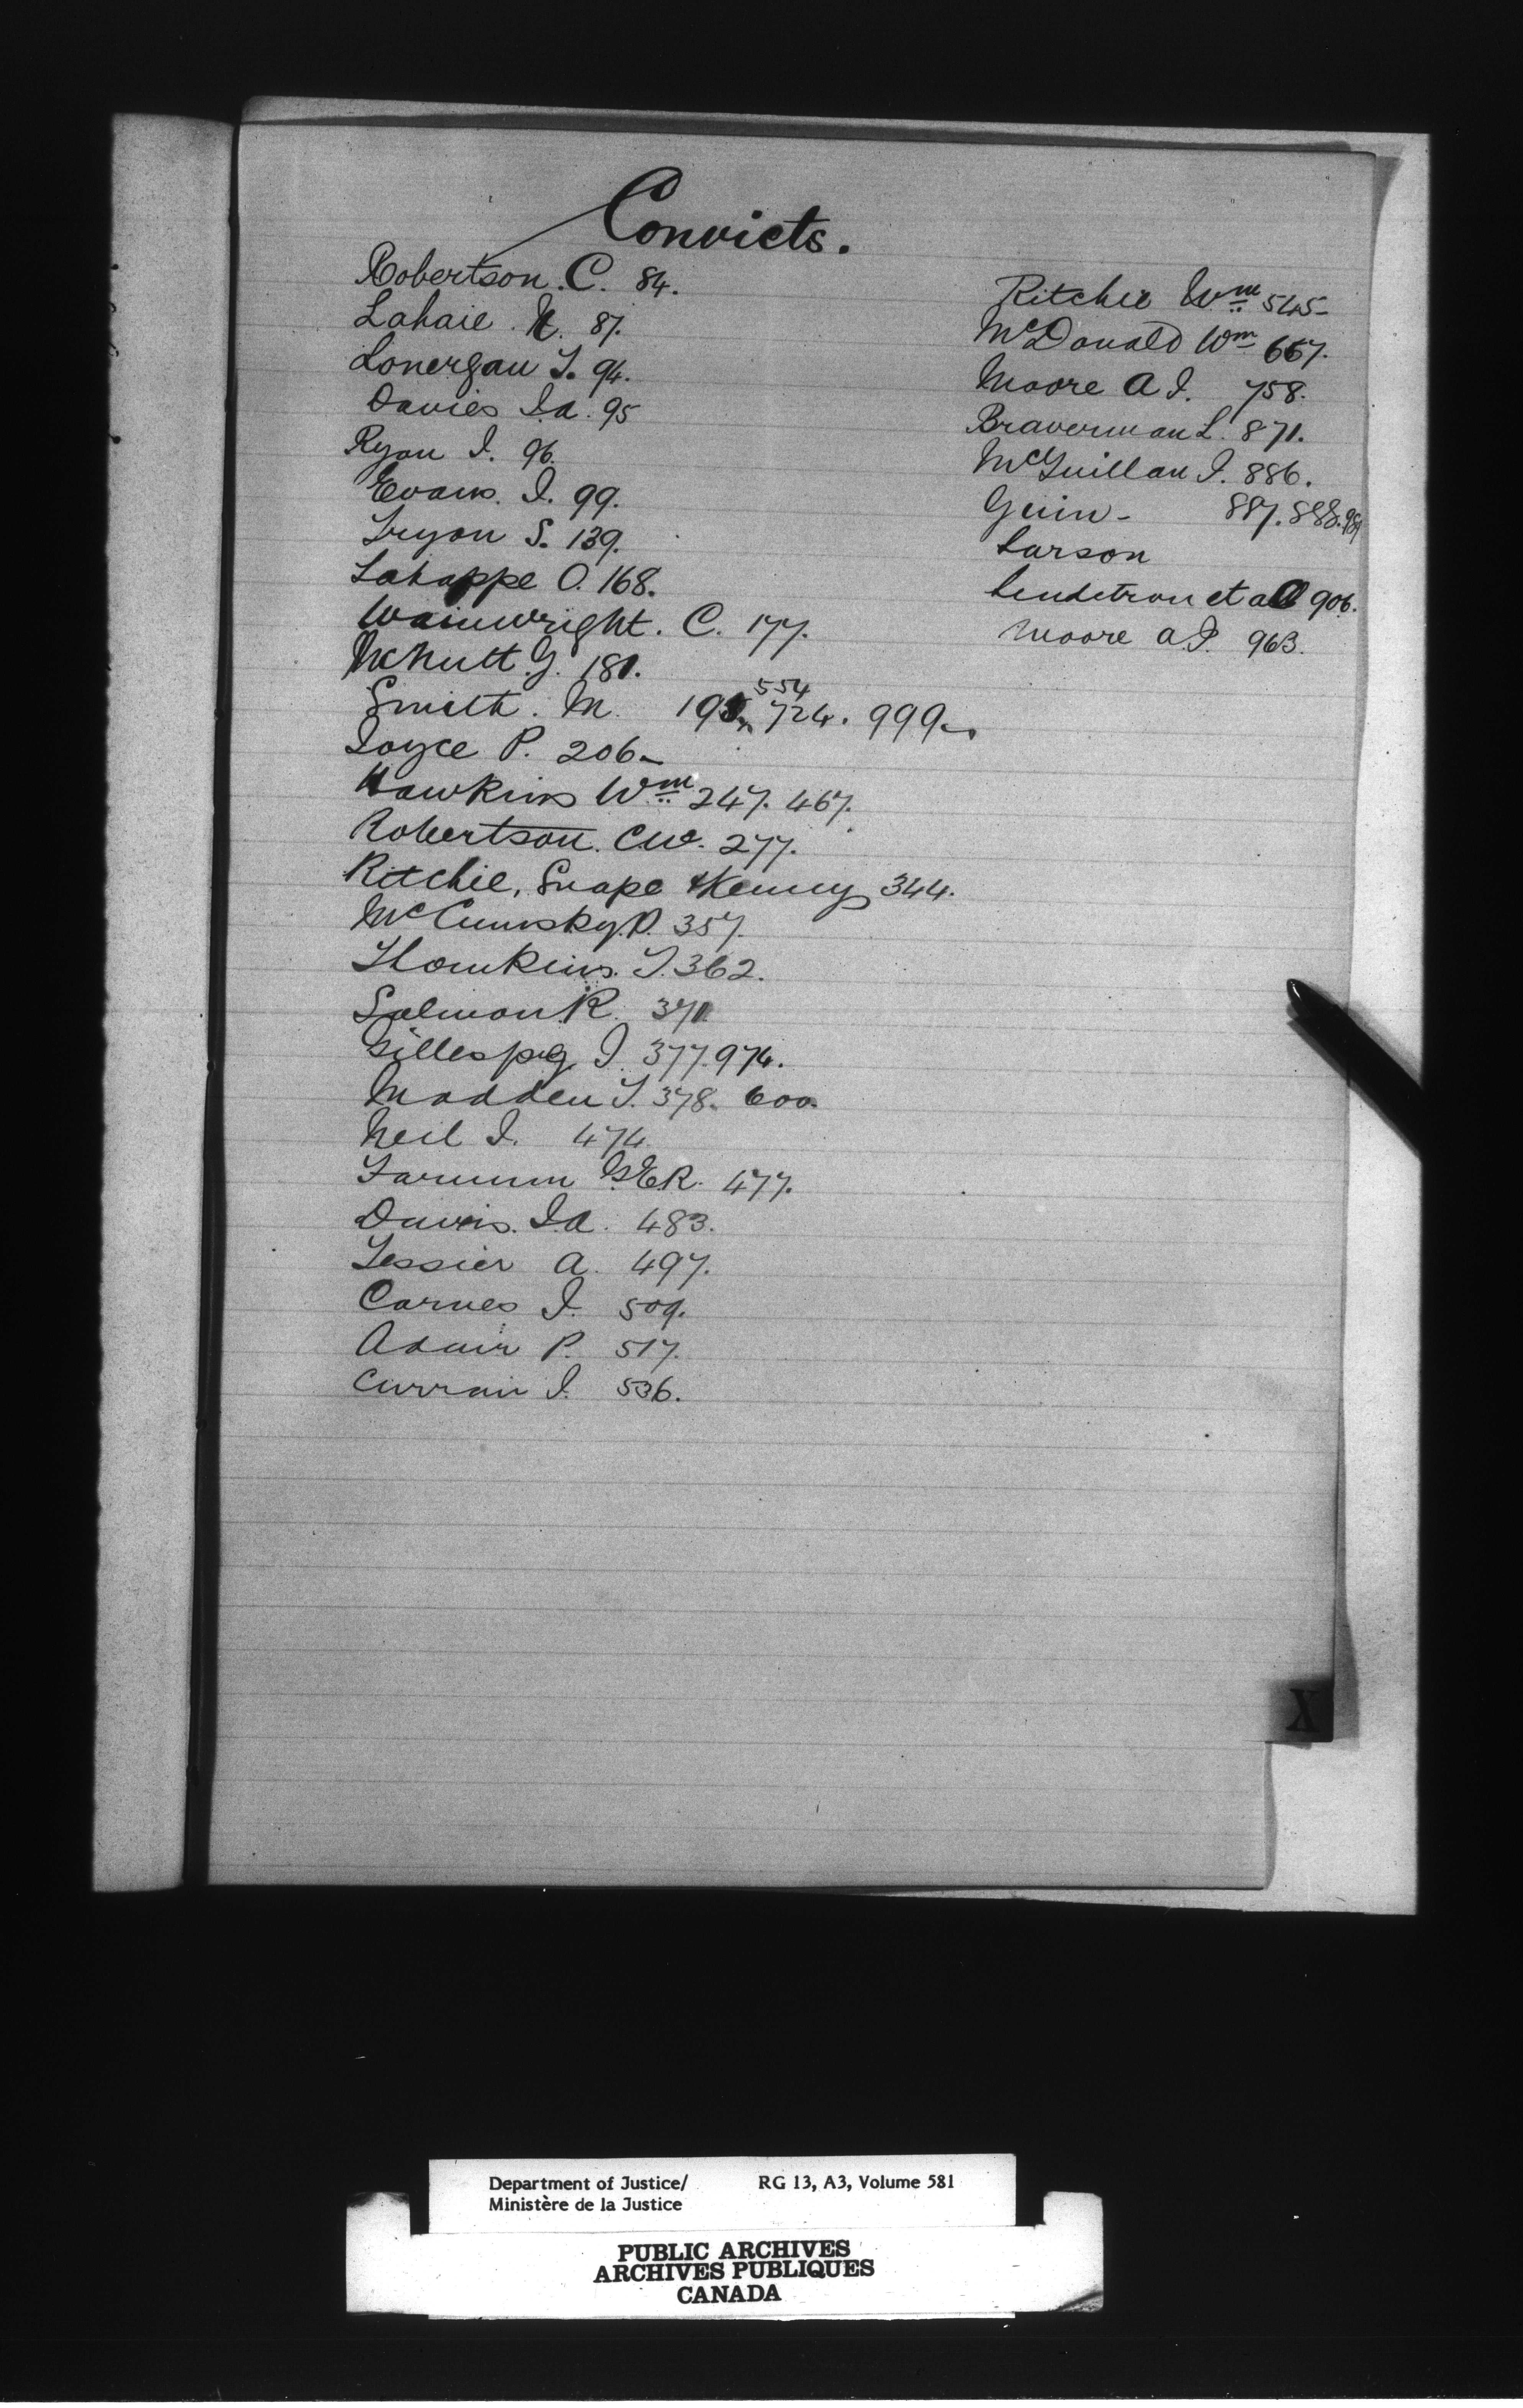 Convicts.
Robertson. C. 84.
Lahaie. N. 87.
Lonergan T. 94.
Davies J.A. 95
Ryan J. 96.
Evans. J. 99.
Tryon S. 139.
Lahappe O. 168.
Wainwright. C. 177.
McNutt. G. 181.
Smith. M. 554 724. 999.
Joyce P. 206
Hawkins Wm 247. 467.
Robertson. C.W. 277.
Ritchie, Snape & Kenny 344.
McCumsky. P. 357.
Thomkins. T. 362.
Salmon R. 371
Gillespy J. 377. 974.
Madden T. 378. 600.
Neil J. 474.
Farnum G.E.R. 477.
Davis. J.A. 483.
Tessier A. 497.
Carnes J. 509.
Adair P. 517.
Curran J. 536.
Ritchie Wm 545
McDonald Wm 667.
Moore A J. 758.
Braverman L. 871.
McQuillan J. 886.
Guin - 887. 888.
Larson
et al 906.
Moore A.J. 963.
X
Department of Justice/ RG 13, A3, Volume 581
Ministère de la Justice
PUBLIC ARCHIVES
ARCHIVES PUBLIQUES
CANADA